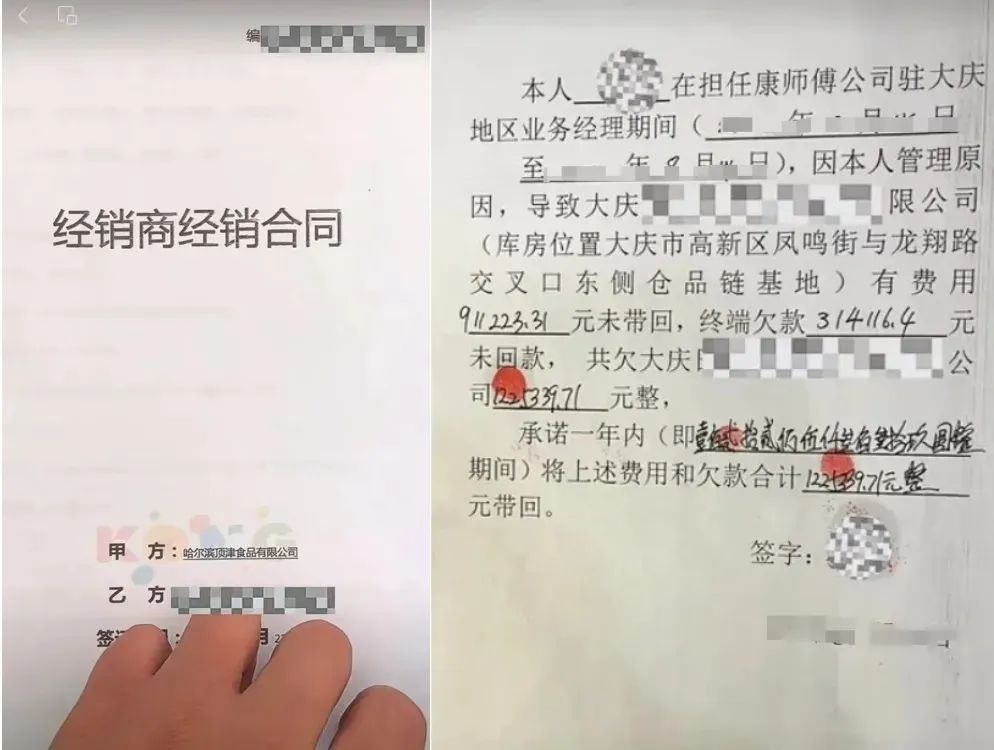 编
经销商经销合同
甲 方：哈尔滨顶津食品有限公司
乙 方
本人 在担任康师傅公司驻大庆
地区业务经理期间（ 年 月 日
至 年 月 日），因本人管理原
因，导致大庆 限公司
（库房位置大庆市高新区凤鸣街与龙翔路
交叉口东侧仓品链基地）有费用
911223.31 元未带回，终端欠款 314116.4 元
未回款， 共欠大庆 公
司1225339.71 元整，
承诺一年内（即
期间）将上述费用和欠款合计1225339.71元整
元带回。
签字：